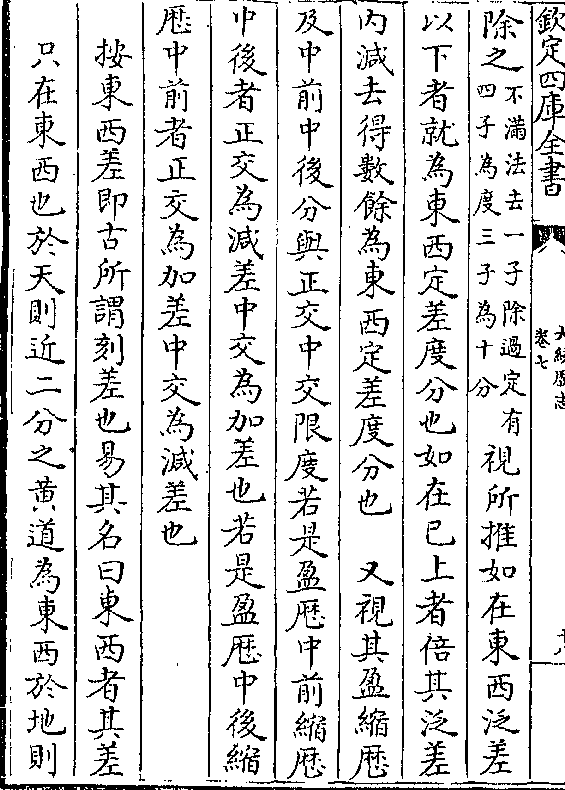 欽定四庫全書
大統厯志
卷七
除之不滿法去一子除過定有四子為度三子為十分視所推如在東西泛差
以下者就為東西定差度分也如在已上者倍其泛差
内減去得數餘為東西定差度分也　又視其盈縮厯
及中前中後分與正交中交限度若是盈厯中前縮厯
中後者正交為減差中交為加差也若是盈厯中後縮
厯中前者正交為加差中交為減差也
按東西差即古所謂刻差也易其名曰東西者其差
只在東西也於天則近二分之黄道為東西於地則